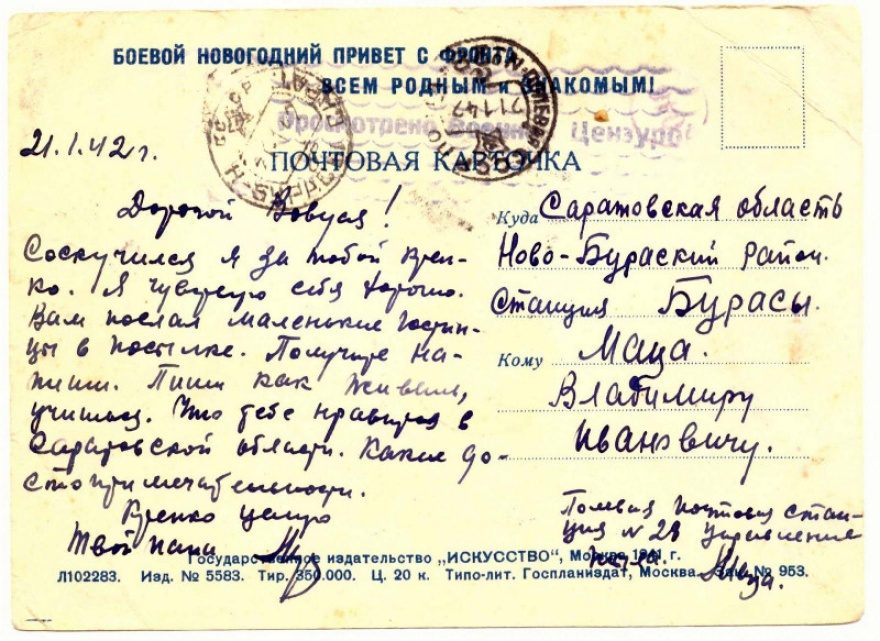 БОЕВОЙ НОВОГОДНИЙ ПРИВЕТ С ФРОНТА
ВСЕМ РОДНЫМ и ЗНАКОМЫМ!
Просмотрено Военной Цензурой
ПОЧТОВАЯ КАРТОЧКА
21.1.42 г.
Дорогой Вовуся!
Соскучился я за тобой крепко-
ко. Я чувствую себя хорошо.
Вам послал маленькие гостин-
цы в посылке. Получите на-
пиши. Пиши как живешь,
учишься. Что тебе нравится в
Саратовской области. Какие до-
стопримечательности.
Крепко целую
Твой папа
Куда Саратовская область
Ново-Бураский район.
Станция Бурасы.
Кому Маца.
Владимиру
Ивановичу.
Полевая почтовая стан-
ция N 28 управление
Маца.
Государственное издательство „ИСКУССТВО", Москва 1941 г.
Л102283. Изд. № 5583. Тир. 350.000. Ц. 20 к. Типо-лит. Госпланиздат, Москва. Зак. № 953.